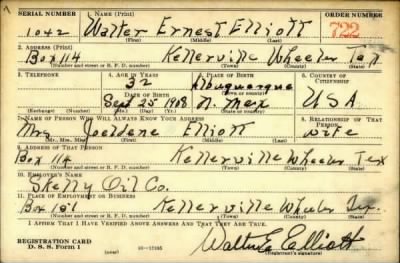 SERIAL NUMBER 1. NAME (Print) ORDER NUMBER
1042 Walter Ernest Elliott 722
(First) (Middle) (Last)
2. ADDRESS (Print)
Box 114 Kellerville Wheeler Tex
(Number and street or R. F. D. number) (Town) (County) (State)
3. TELEPHONE 4. AGE IN YEARS 5. PLACE OF BIRTH 6. COUNTRY OF CITIZENSHIP
32 Albuquerque
DATE OF BIRTH (Town or county)
Sept 25 1908 N. Mex USA
(Exchange) (Number) (Mo.) (Day) (Yr.) (State or country)
7. NAME OF PERSON WHO WILL ALWAYS KNOW YOUR ADDRESS 8. RELATIONSHIP OF THAT PERSON
Mrs Joeldene Elliott wife
(Mr., Mrs., Miss) (First) (Middle) (Last)
9. ADDRESS OF THAT PERSON
Box 114 Kellerville Wheeler Tex
(Number and street or R. F. D. number) (Town) (County) (State)
10. EMPLOYER'S NAME
Skelly Oil Co.
11. PLACE OF EMPLOYMENT OR BUSINESS
Box 101 Kellerville Wheeler Tex.
(Number and street or R. F. D. number) (Town) (County) (State)
I AFFIRM THAT I HAVE VERIFIED ABOVE ANSWERS AND THAT THEY ARE TRUE.
REGISTRATION CARD
D. S. S. Form 1 16—17105 Walter E Elliott
(Registrant's signature)